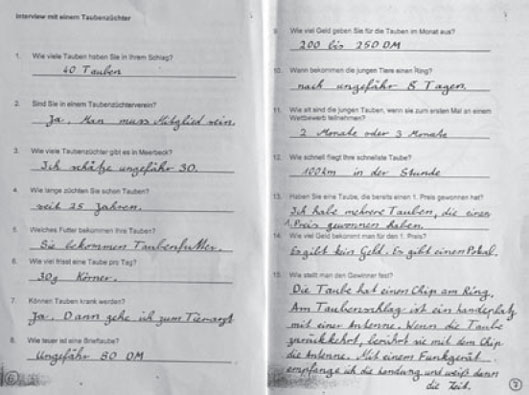 Interview mit einem Taubenzüchter
1. Wie viele Tauben haben Sie in Ihrem Schlag?
40 Tauben
2. Sind Sie in einem Taubenzüchterverein?
Ja. Man muss Mitglied sein.
3. Wie viele Taubenzüchter gibt es in Meerbeck?
Ich schätze ungefähr 30.
4. Wie lange züchten Sie schon Tauben?
seit 25 Jahren.
5. Welches Futter bekommen Ihre Tauben?
Sie bekommen Taubenfutter.
6. Wie viel frisst eine Taube pro Tag?
30g Körner.
7. Können Tauben krank werden?
Ja. Dann gehe ich zum Tierarzt
8. Wie teuer ist eine Brieftaube?
Ungefähr 80 DM
6
9. Wie viel Geld geben Sie für die Tauben im Monat aus?
200 bis 250 DM
10. Wann bekommen die jungen Tiere einen Ring?
nach ungefähr 8 Tagen.
11. Wie alt sind die jungen Tauben, wenn sie zum ersten Mal an einem
Wettbewerb teilnehmen?
2 Monate oder 3 Monate
12. Wie schnell fliegt Ihre schnellste Taube?
100km in der Stunde
13. Haben Sie eine Taube, die bereits einen 1. Preis gewonnen hat?
Ich habe mehrere Tauben, die einen
1. Preis gewonnen haben.
14. Wie viel Geld bekommt man für den 1. Preis?
Es gibt kein Geld. Es gibt einen Pokal.
15. Wie stellt man den Gewinner fest?
Die Taube hat einen Chip am Ring.
Am Taubenschlag ist ein Landeplatz
mit einer Antenne. Wenn die Taube
zurückkehrt, berührt sie mit dem Chip
die Antenne. Mit einem Funkgerät
empfange ich die Landung und weiß dann
die Zeit.
7